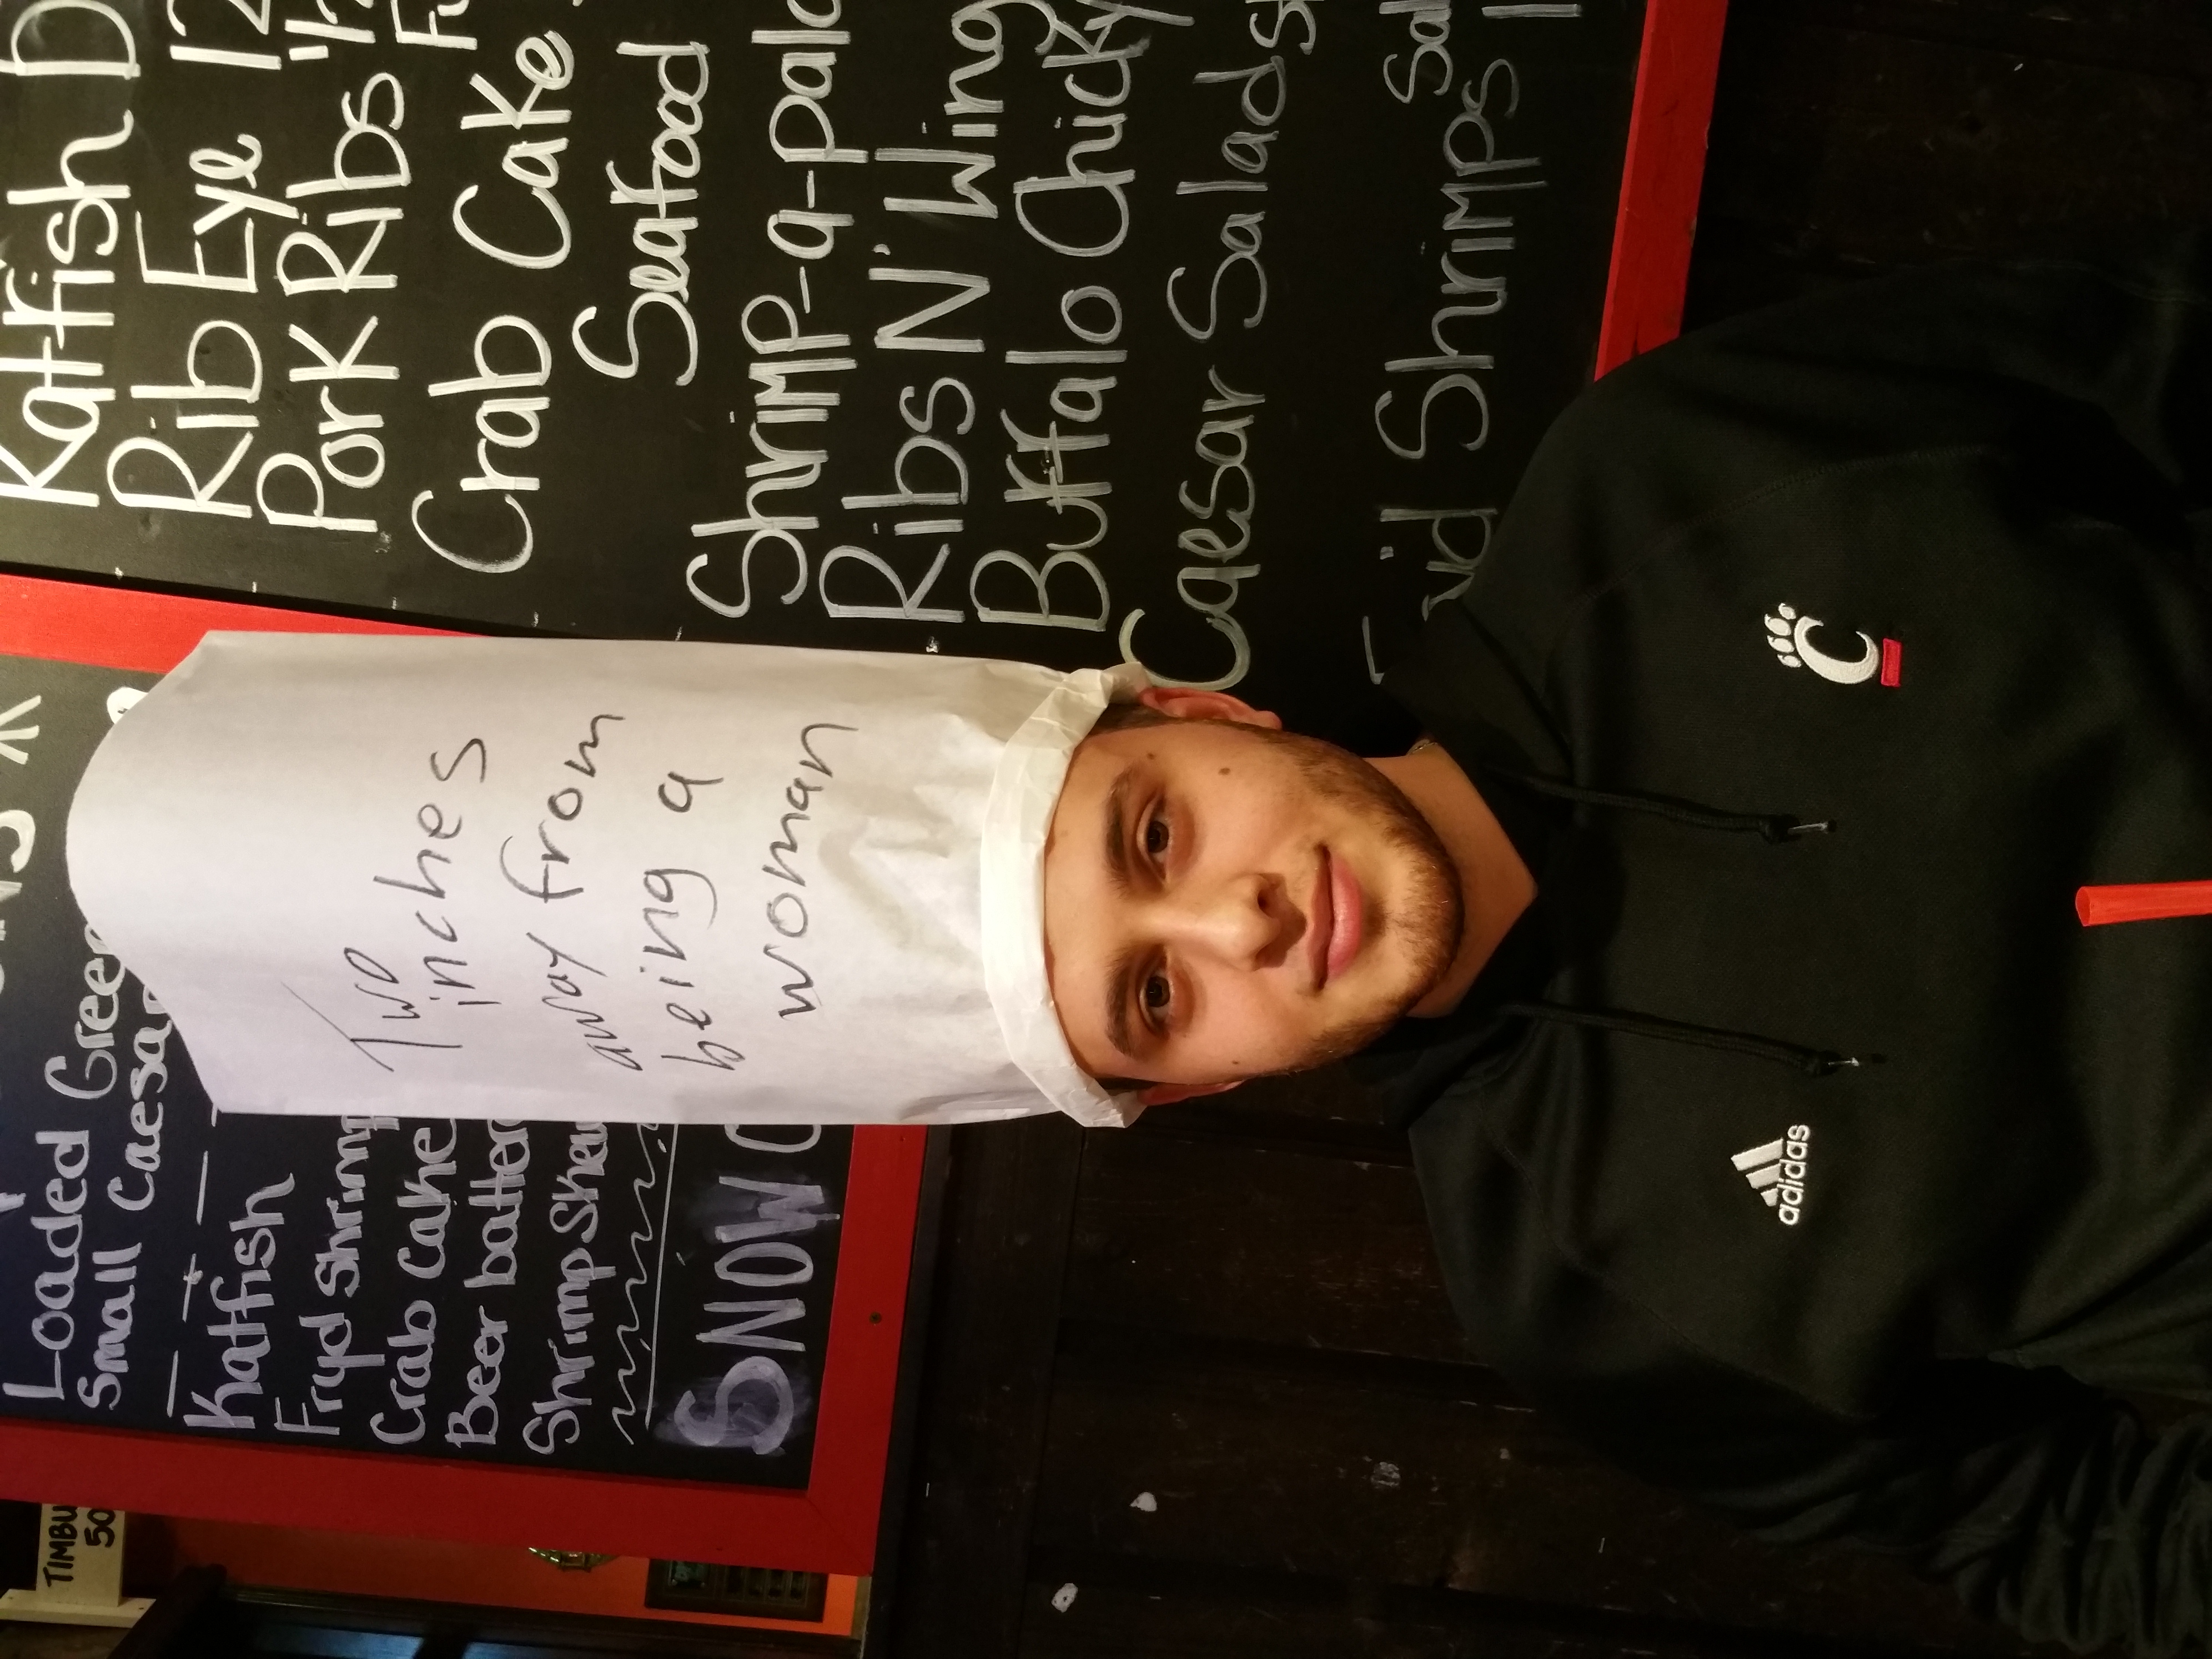 TIMBU
50
Loaded Gree
Small Caesa
Katfish
Fryd Shrimp
Crab Cake
Beer batter
Shrimp Skew
SNOW C
Two
inches
away from
being a
woman
Katfish D
Rib Eye 12
Pork Ribs 1/2
Fu
Crab Cake
Seafood
Shrimp-a-pal
Ribs N' Wing
Buffalo Chicky
Caesar Salads
Sal
Shrimps
adidas
C